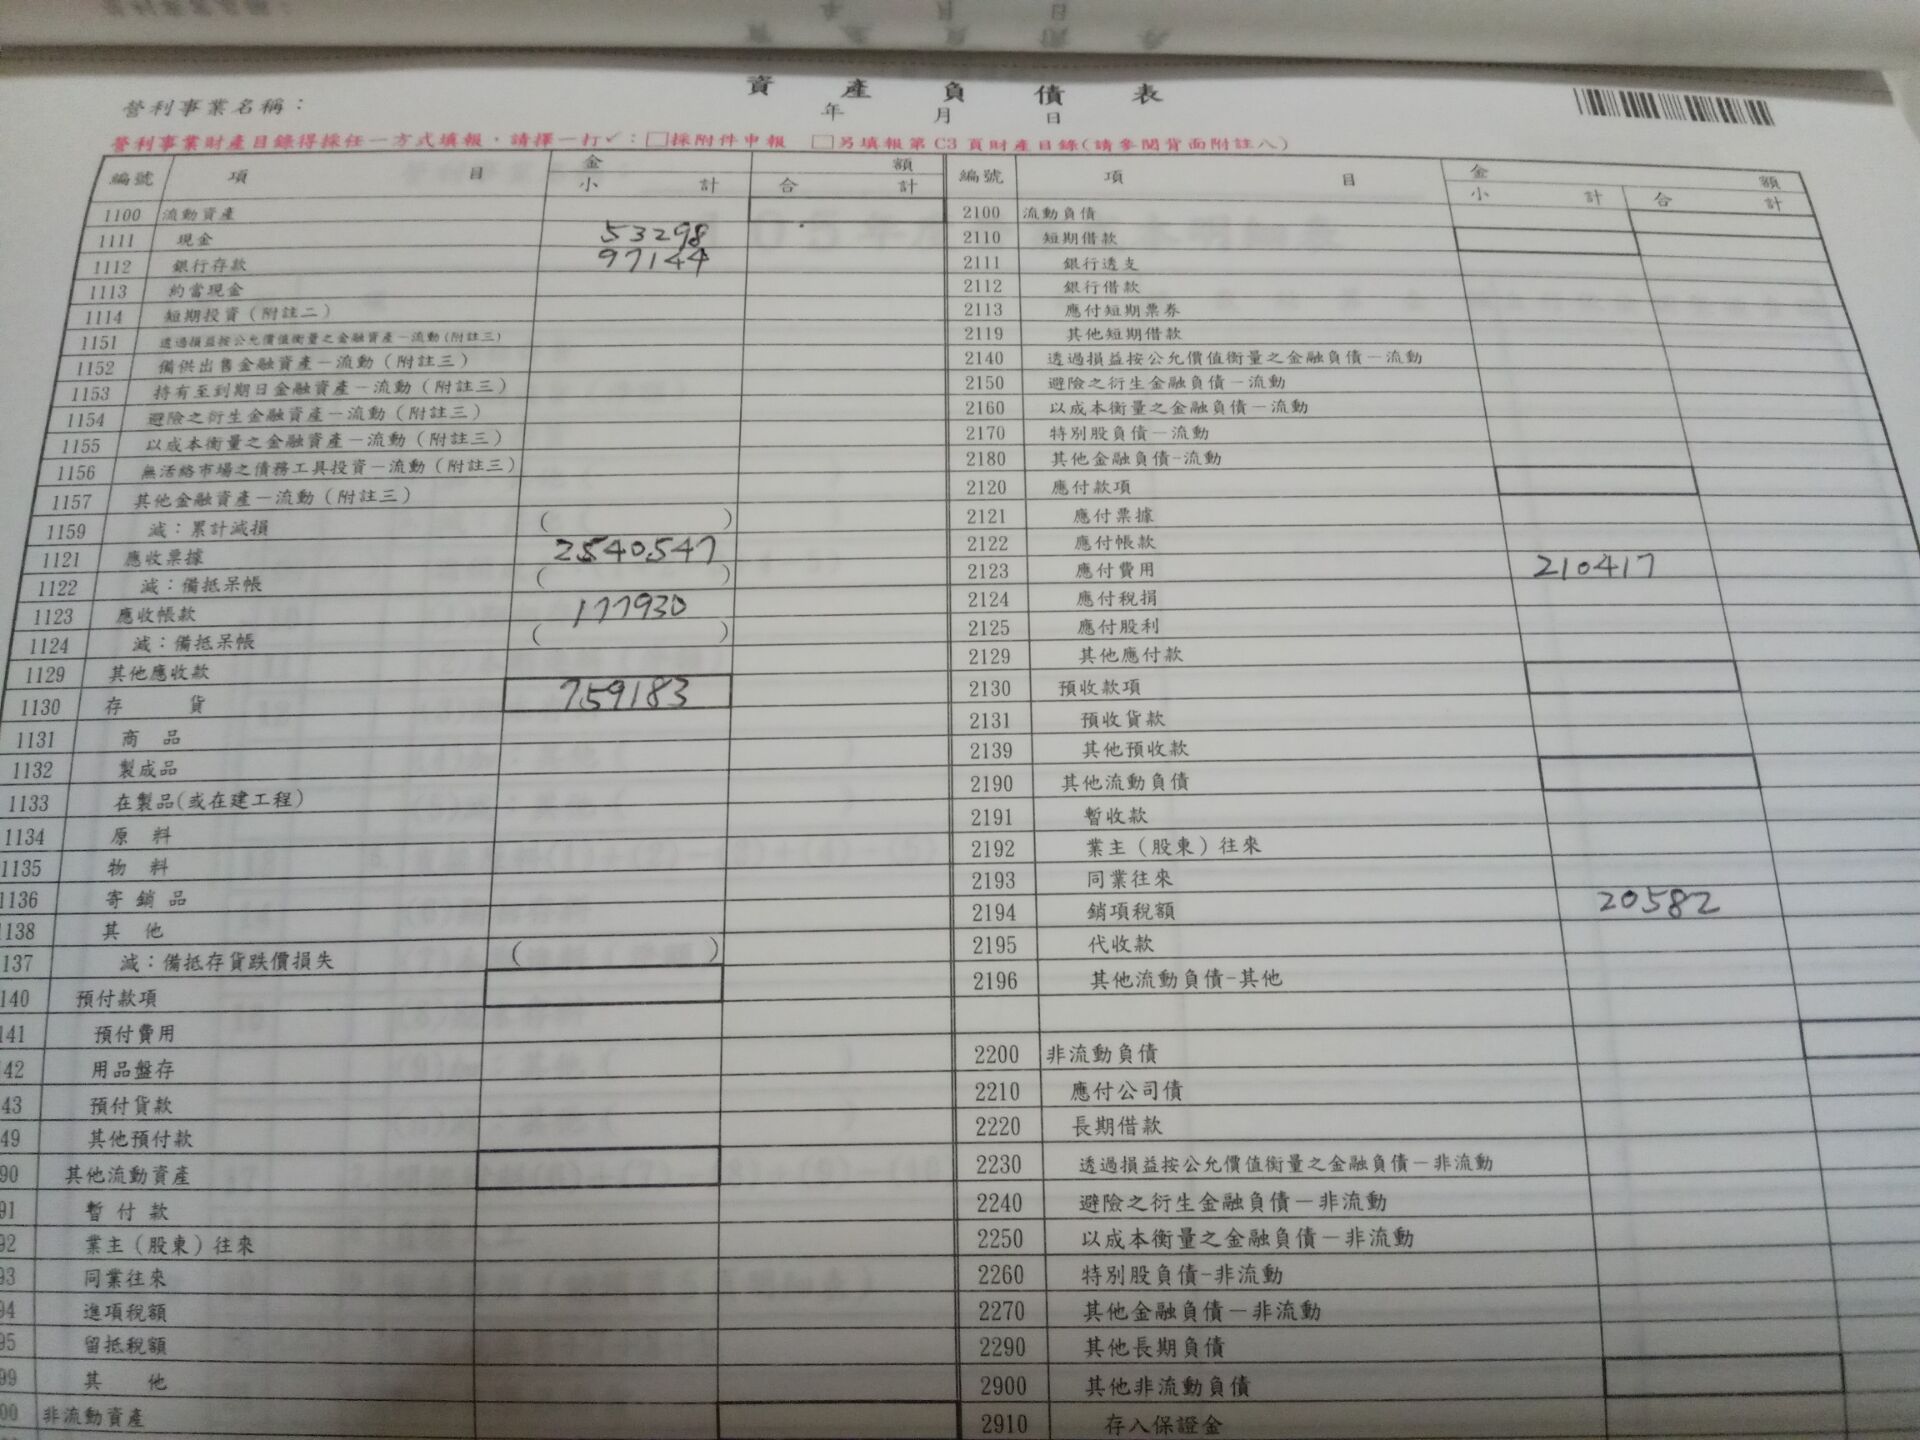 資產負債表
營利事業名稱：
年 月 日
營利事業財產目錄得採任一方式填報，請擇一打✓：□採附件申報 □另填報第 C3 頁財產目錄(請參閱背面附註八)
編號 項 目 金 額 小 計 合 計
1100 流動資產
1111 現金 53298
1112 銀行存款 97144
1113 約當現金
1114 短期投資(附註二)
1151 透過損益按公允價值衡量之金融資產－流動(附註三)
1152 備供出售金融資產－流動(附註三)
1153 持有至到期日金融資產－流動(附註三)
1154 避險之衍生金融資產－流動(附註三)
1155 以成本衡量之金融資產－流動(附註三)
1156 無活絡市場之債務工具投資－流動(附註三)
1157 其他金融資產－流動(附註三)
1159 減：累計減損 ( )
1121 應收票據 2540547
1122 減：備抵呆帳 ( )
1123 應收帳款 177930
1124 減：備抵呆帳 ( )
1129 其他應收款
1130 存 貨 759183
1131 商 品
1132 製成品
1133 在製品(或在建工程)
1134 原 料
1135 物 料
1136 寄銷品
1138 其 他
137 減：備抵存貨跌價損失 ( )
140 預付款項
141 預付費用
42 用品盤存
43 預付貨款
49 其他預付款
90 其他流動資產
91 暫付款
92 業主(股東)往來
93 同業往來
94 進項稅額
95 留抵稅額
99 其 他
00 非流動資產
編號 項 目 金 額 小 計 合 計
2100 流動負債
2110 短期借款
2111 銀行透支
2112 銀行借款
2113 應付短期票券
2119 其他短期借款
2140 透過損益按公允價值衡量之金融負債－流動
2150 避險之衍生金融負債－流動
2160 以成本衡量之金融負債－流動
2170 特別股負債－流動
2180 其他金融負債-流動
2120 應付款項
2121 應付票據
2122 應付帳款
2123 應付費用 210417
2124 應付稅捐
2125 應付股利
2129 其他應付款
2130 預收款項
2131 預收貨款
2139 其他預收款
2190 其他流動負債
2191 暫收款
2192 業主(股東)往來
2193 同業往來
2194 銷項稅額 20582
2195 代收款
2196 其他流動負債-其他
2200 非流動負債
2210 應付公司債
2220 長期借款
2230 透過損益按公允價值衡量之金融負債－非流動
2240 避險之衍生金融負債－非流動
2250 以成本衡量之金融負債－非流動
2260 特別股負債-非流動
2270 其他金融負債－非流動
2290 其他長期負債
2900 其他非流動負債
2910 存入保證金